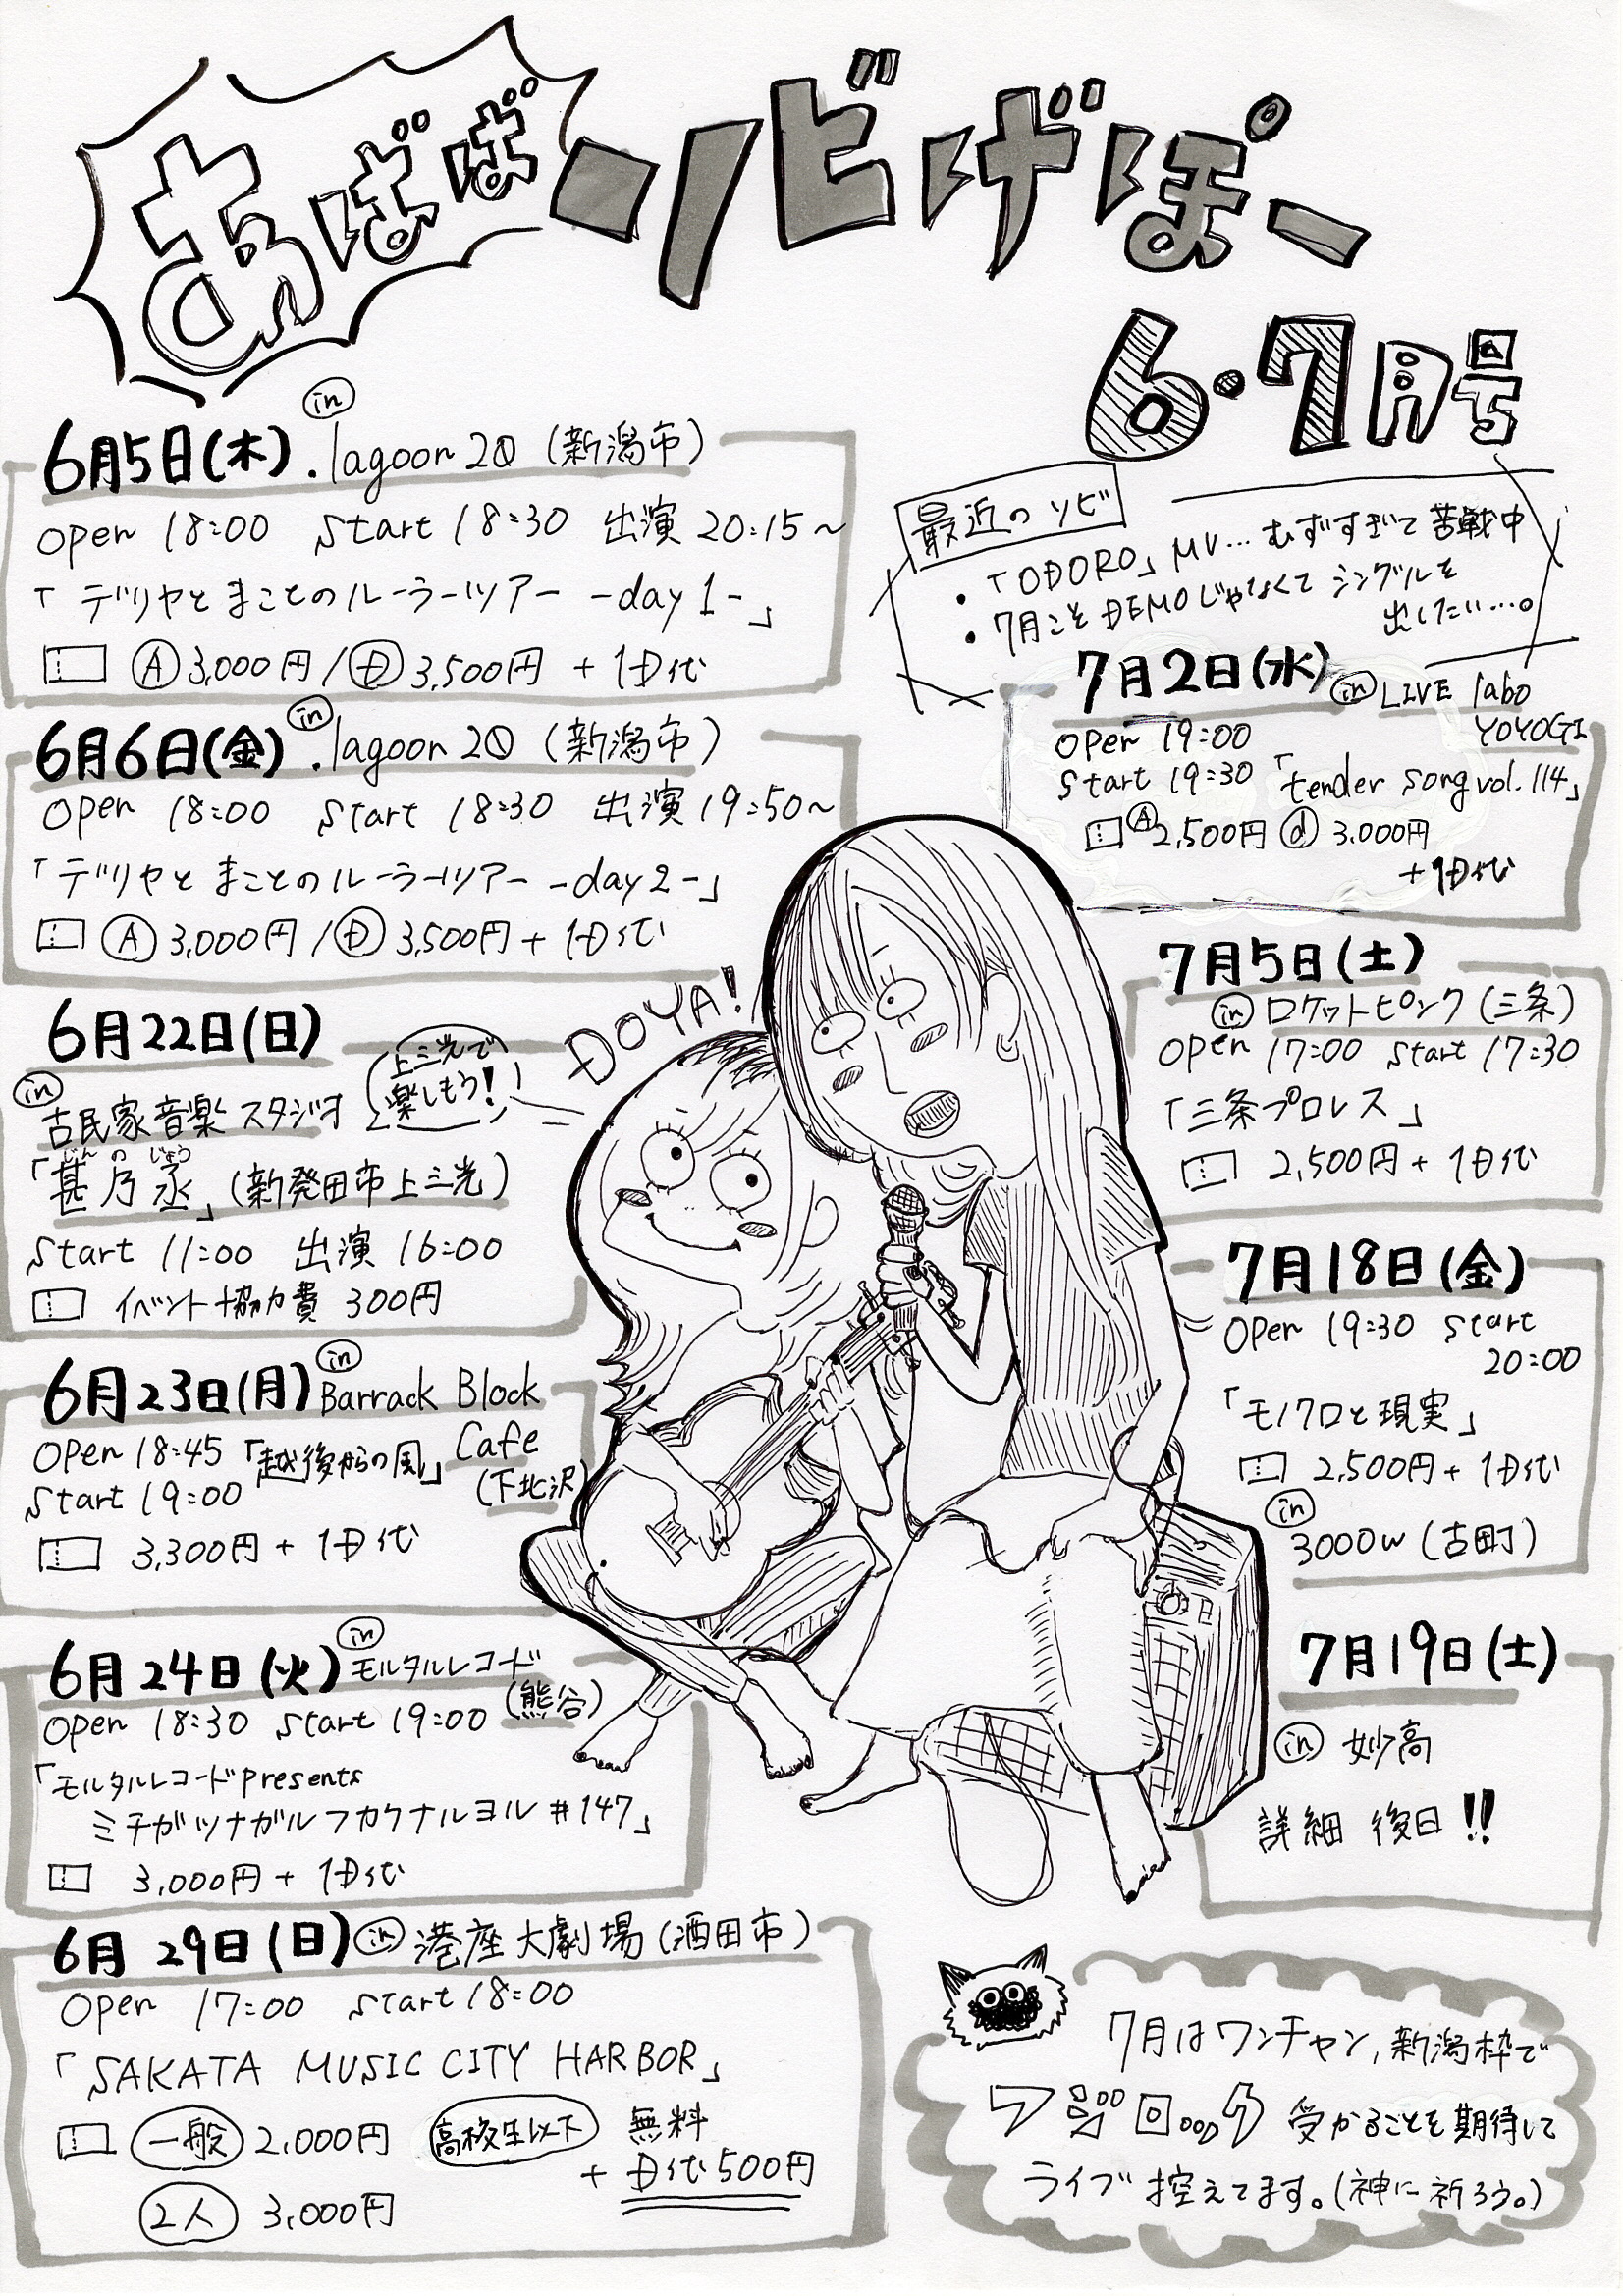 あばばーソビげぽー
6・7月号
6月5日(木) in lagoon20 (新潟市)
open 18:00 start 18:30 出演 20:15〜
「デリヤとまことのルーラーツアー -day1-」
Ⓐ 3,000円 / Ⓓ 3,500円 + 1D代
6月6日(金) in lagoon20 (新潟市)
open 18:00 start 18:30 出演 19:50〜
「デリヤとまことのルーラーツアー -day2-」
Ⓐ 3,000円 / Ⓓ 3,500円 + 1D代
6月22日(日)
in 古民家音楽スタジオ
じんのじょう
「甚乃丞」(新発田市上三光)
start 11:00 出演 16:00
イベント協力費 300円
上三光で
楽しもう!
DOYA!
6月23日(月) in Barrack Block
Cafe
(下北沢)
open 18:45 「越後からの風」
start 19:00
3,300円 + 1D代
6月24日(火) in モルタルレコード
(熊谷)
open 18:30 start 19:00
「モルタルレコードpresents
ミチガツナガルフカクナルヨル #147」
3,000円 + 1D代
6月29日(日) in 港座大劇場(酒田市)
open 17:00 start 18:00
「SAKATA MUSIC CITY HARBOR」
一般 2,000円 高校生以下 無料
+ D代500円
2人 3,000円
最近のソビ
・「ODORO」MV…むずすぎて苦戦中
・7月こそDEMOじゃなくてシングルを
出したい…。
7月2日(水) in LIVE labo
YOYOGI
open 19:00
start 19:30 「tender song vol.114」
Ⓐ 2,500円 ⓓ 3,000円
+1D代
7月5日(土)
in ロケットピンク(三条)
open 17:00 start 17:30
「三条プロレス」
2,500円 + 1D代
7月18日(金)
open 19:30 start
20:00
「モノクロと現実」
2,500円 + 1D代
in
3000w (古町)
7月19日(土)
in 妙高
詳細 後日!!
7月はワンチャン、新潟枠で
フジロック 受かることを期待して
ライブ控えてます。(神に祈ろう。)